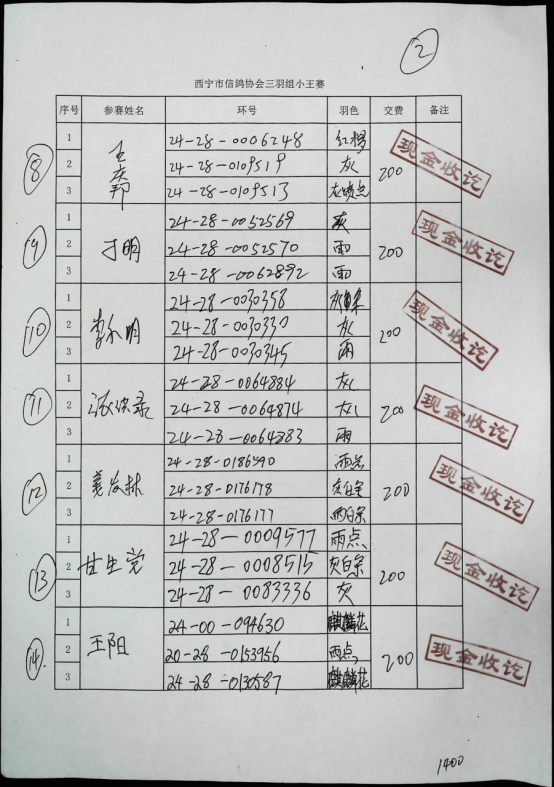 2
西宁市信鸽协会三羽组小王赛
序号 参赛姓名 环号 羽色 交费 备注
8 王庆邦 200 现金收讫
1 24-28-0006248 红楞
2 24-28-0109519 灰
3 24-28-0109513 灰喷点
9 于明 200 现金收讫
1 24-28-0052569 灰
2 24-28-0052570 雨
3 24-28-0062892 雨
10 明 200 现金收讫
1 24-28-0030358
2 24-28-0030330 灰
3 24-28-0030345 雨
11 200 现金收讫
1 24-28-0064884 灰
2 24-28-0064874 灰
3 24-28-0064883 雨
12 姜发林 200 现金收讫
1 24-28-0186590
2 24-28-0176178
3 24-28-0176177 雨白条
13 甘生党 200 现金收讫
1 24-28-0009577 雨点
2 24-28-0008515 灰白条
3 24-28-0083336 灰
14 王阳 200 现金收讫
1 24-00-094630 麒麟花
2 20-28-0153956 雨点
3 24-28-0130587 麒麟花
1400